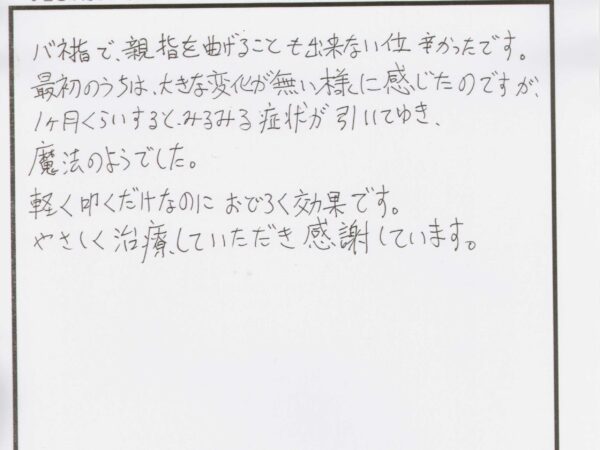 バネ指で、親指を曲げることも出来ない位 辛かったです。
最初のうちは、大きな変化が無い様に感じたのですが、
1ヶ月くらいすると、みるみる症状が引いてゆき、
魔法のようでした。
軽く叩くだけなのに おどろく効果です。
やさしく治療していただき感謝しています。